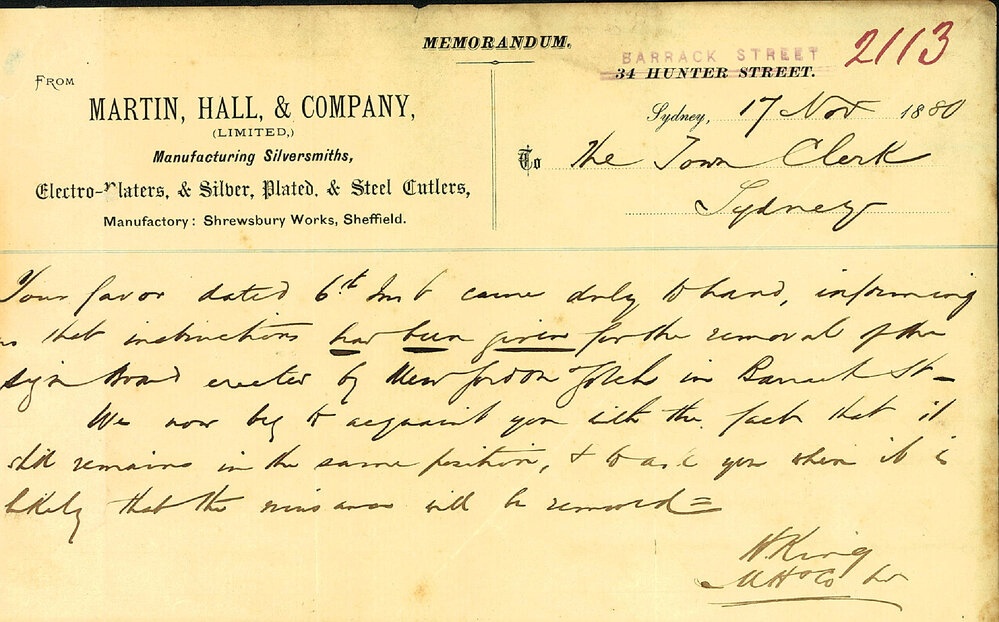 MEMORANDUM.
BARRACK STREET
34 HUNTER STREET.
2113
FROM
MARTIN, HALL, & COMPANY,
(LIMITED,)
Manufacturing Silversmiths,
Electro-Platers, & Silver, Plated, & Steel Cutlers,
Manufactory: Shrewsbury Works, Sheffield.
Sydney, 17 Nov 1880
To The Town Clerk
Sydney
Your favor dated 6th Inst came duly to hand, informing
us that instructions had been given for the removal of the
sign board erected by Mess in Barrack St -
We now beg to acquaint you with the fact that it
still remains in the same position, & to ask you when it is
likely that the nuisance will be removed =
H King
M H & Co Ld